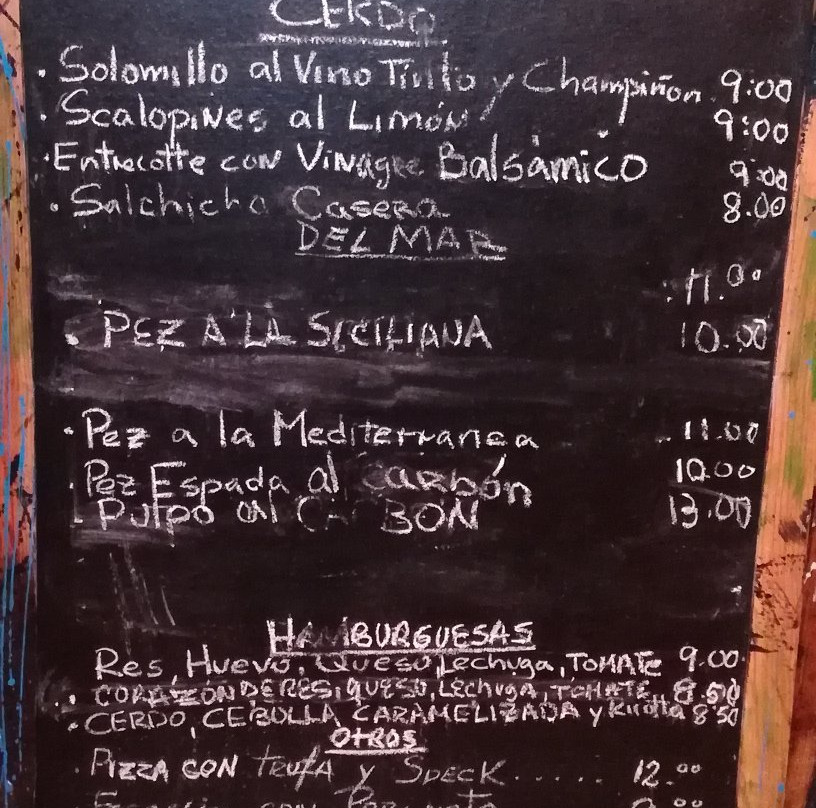 CERDO
. Solomillo al Vino Tinto y Champiñon 9:00
. Scalopines al Limón 9:00
. Entrecotte con Vinagre Balsámico 9:00
. Salchicha Casera 8.00
DEL MAR
11.00
. PEZ A LA SICILIANA 10.00
. Pez a la Mediterranea 11.00
. Pez Espada al carbón 10.00
. Pulpo al CARBON 13.00
HAMBURGUESAS
Res, Huevo, Queso, Lechuga, TOMATE 9.00
. CORAZON DE RES, QUESO, Lechuga, TOMATE 8.50
. CERDO, CEBOLLA CARAMELIZADA y Ricotta 8.50
OTROS
. PIZZA CON TRUFA y SPECK ..... 12.00